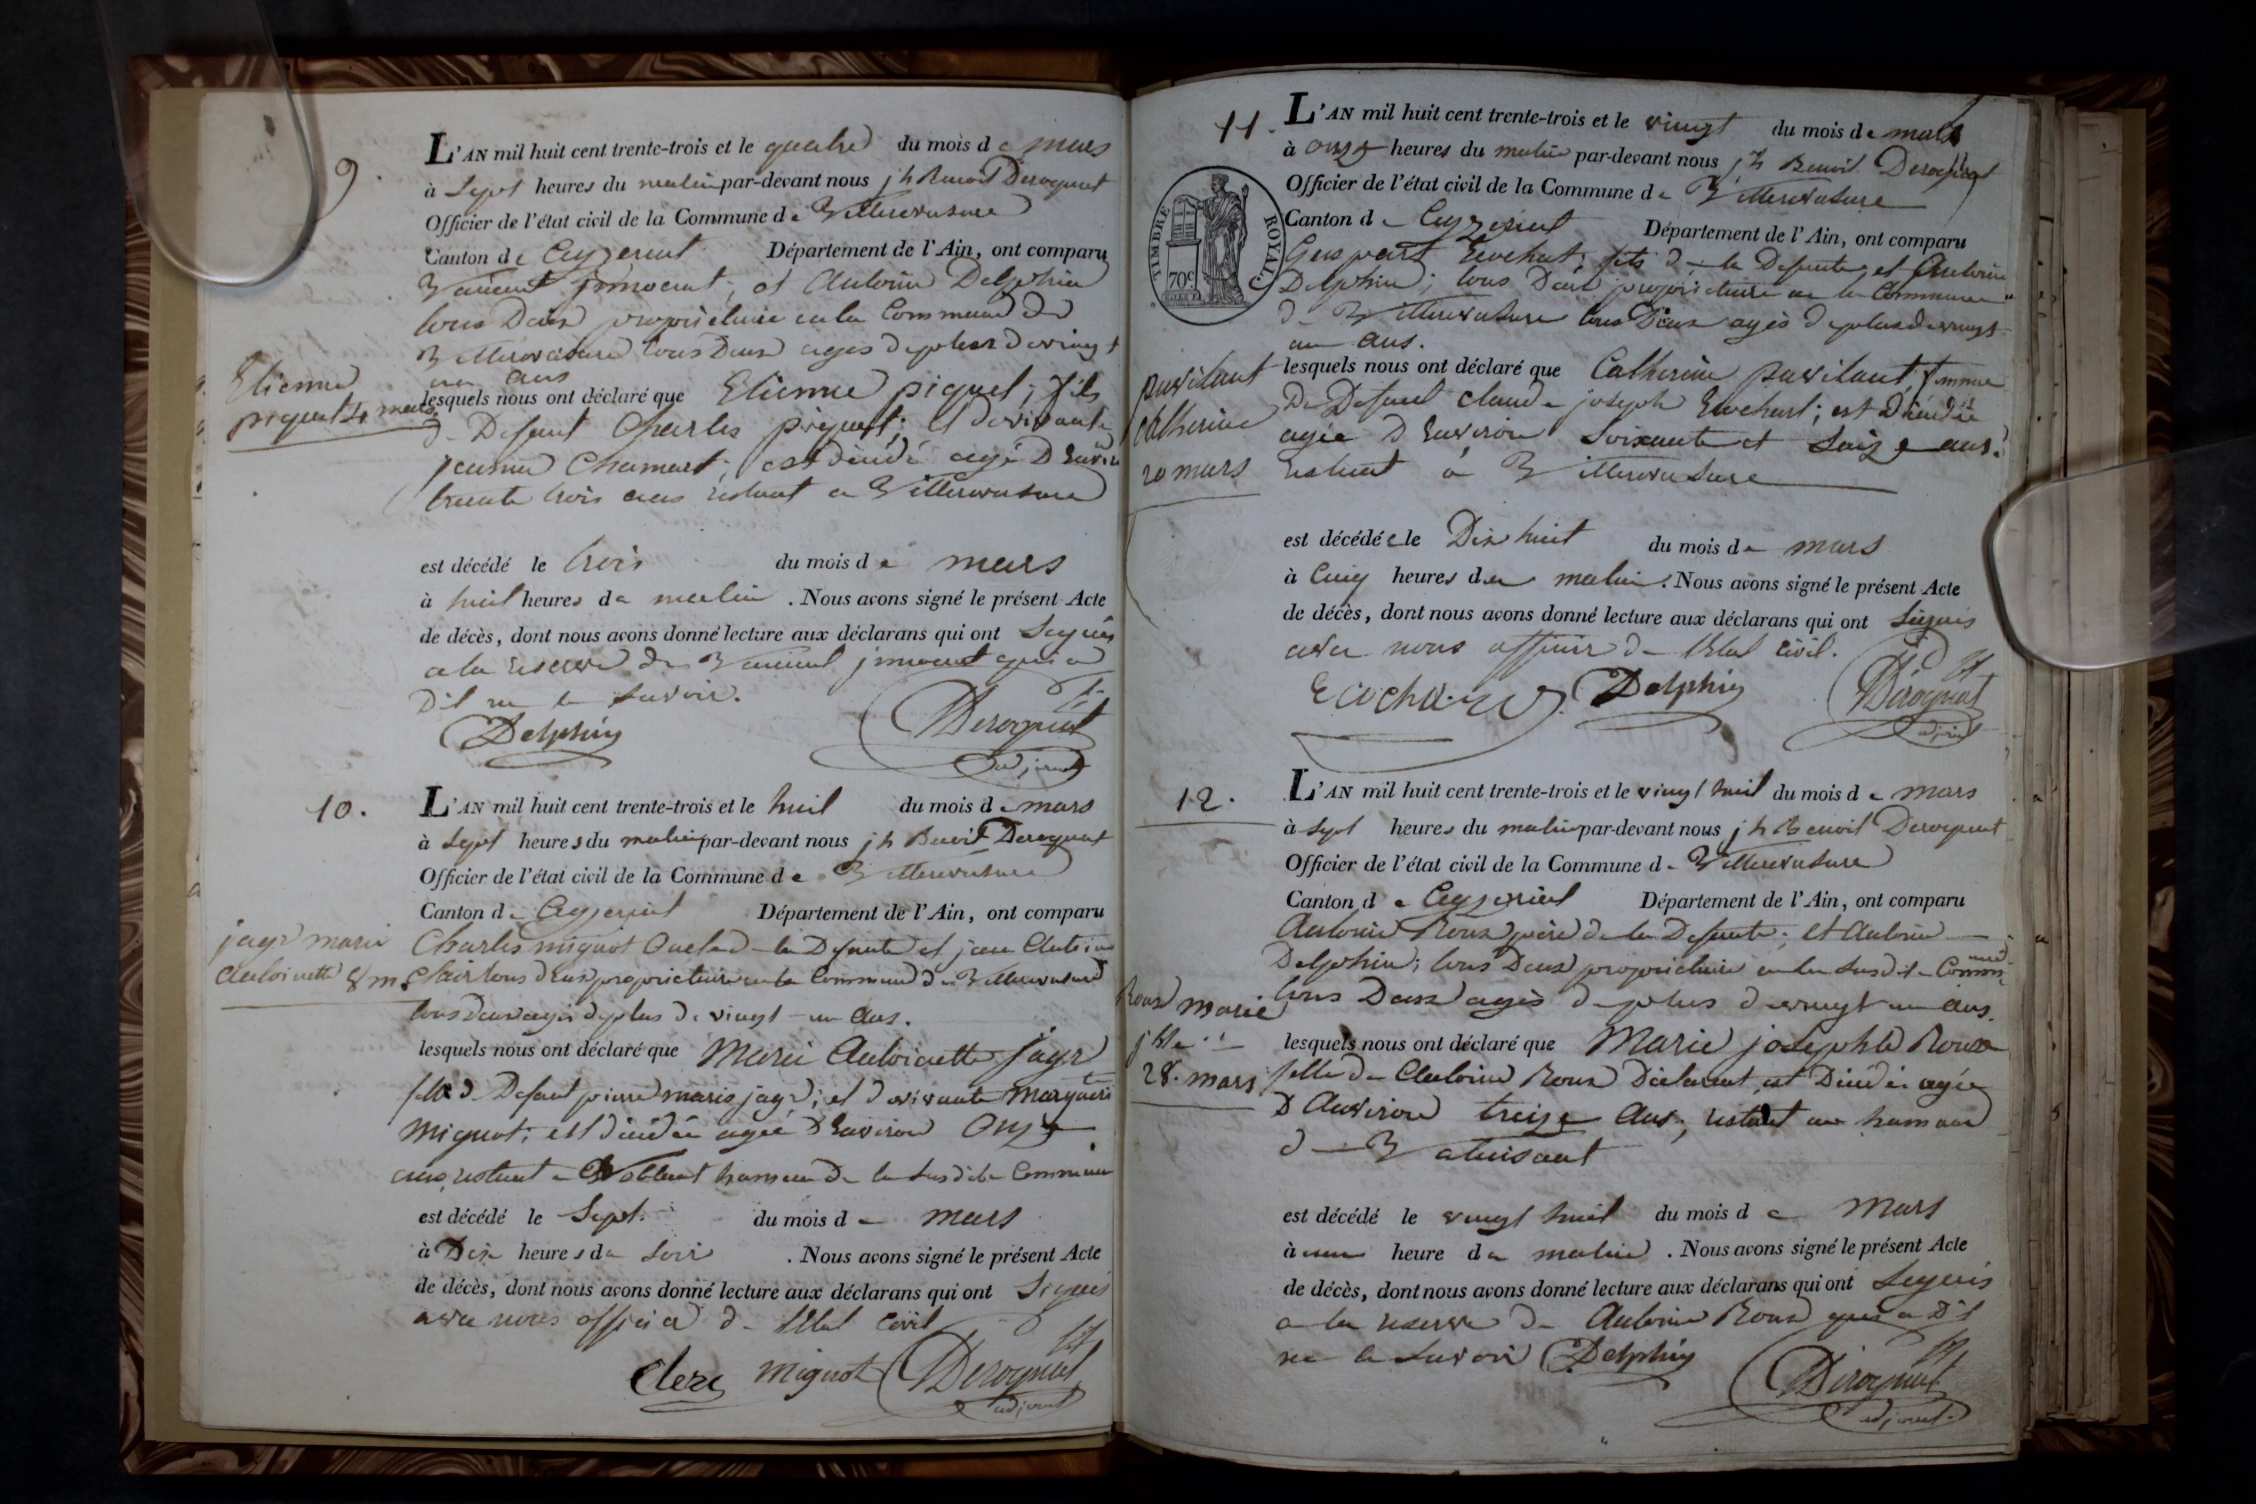 9.
L'AN mil huit cent trente-trois et le quatre du mois de mars
à Sept heures du matin par-devant nous jh Benoit Derognat
Officier de l'état civil de la Commune de Villereversure
Canton de Ceyzeriat Département de l'Ain, ont comparu
Vincent innocent; et Antoine Delphin
tous Deux propriétaire en la Commune de
Villereversure tous Deux agés de plus de vingt
un ans
Etienne
piquet 4 mars
lesquels nous ont déclaré que Etienne piquet; fils
de Defunt Charles piquet; et de vivante
jeanne Chamart; est décédé agé D'Environ
trente trois ans restant a Villereversure
est décédé le trois du mois de mars
à huit heures de matin. Nous avons signé le présent Acte
de décès, dont nous avons donné lecture aux déclarans qui ont Signés
a la reserve de Vincent innocent qui a
Dit ne le savoir.
Delphin Derognat
adjoint
10.
L'AN mil huit cent trente-trois et le huit du mois de mars
à Sept heures du matin par-devant nous jh Benoit Derognat
Officier de l'état civil de la Commune de Villereversure
Canton de Ceyzeriat Département de l'Ain, ont comparu
jayr marie
Antoinette 8 m.
Charles mignot Oncle de la Defunte et jean
Clair tous deux propriétaire en la Commune de Villereversure
tous deux agés de plus de vingt un ans.
lesquels nous ont déclaré que Marie Antoinette jayr
fille de Defunt pierre marie jayr; et de vivante Marguerite
Mignot; est décédée agée D'Environ Onze
ans, restant a hameau de la susdite Commune
est décédé le Sept du mois de mars
à Dix heures de soir. Nous avons signé le présent Acte
de décès, dont nous avons donné lecture aux déclarans qui ont Signés
avec nous officier de l'Etat civil
Clerc mignot Derognat
adjoint
11.
L'AN mil huit cent trente-trois et le vingt du mois de mars
à onze heures du matin par-devant nous jh Benoit Derognat
Officier de l'état civil de la Commune de Villereversure
TIMBRE ROYAL
70c
Canton de Ceyzeriat Département de l'Ain, ont comparu
Gaspart Ecochat; fils de la Defunte, et Antoine
Delphin; tous Deux propriétaire en la Commune
de Villereversure tous Deux agés de plus de vingt
un ans.
pavilant
catherine
20 mars
lesquels nous ont déclaré que Catherine pavilant, femme
De Defunt claude joseph Ecochart; est décédée
agée D'Environ soixante et seize ans.
restant à Villereversure
est décédée le Dix huit du mois de mars
à Cinq heures du matin. Nous avons signé le présent Acte
de décès, dont nous avons donné lecture aux déclarans qui ont Signés
avec nous officier de l'Etat civil.
Delphin Derognat
adjoint
12.
L'AN mil huit cent trente-trois et le vingt huit du mois de mars
à Sept heures du matin par-devant nous jh Benoit Derognat
Officier de l'état civil de la Commune de Villereversure
Canton de Ceyzeriat Département de l'Ain, ont comparu
Antoine Roux père de la Defunte; et Antoine
Delphin; tous Deux propriétaire en la susdite Commune
tous Deux agés de plus de vingt un ans.
Roux marie
jthe
28. mars
lesquels nous ont déclaré que Marie josephte Roux
fille de Antoine Roux Déclarant, est Décédée agée
D'Environ treize ans; restant au hameau
de
est décédé le vingt huit du mois de Mars
à une heure du matin. Nous avons signé le présent Acte
de décès, dont nous avons donné lecture aux déclarans qui ont Signés
a la reserve de Antoine Roux qui a Dit
ne le savoir Delphin Derognat
adjoint.